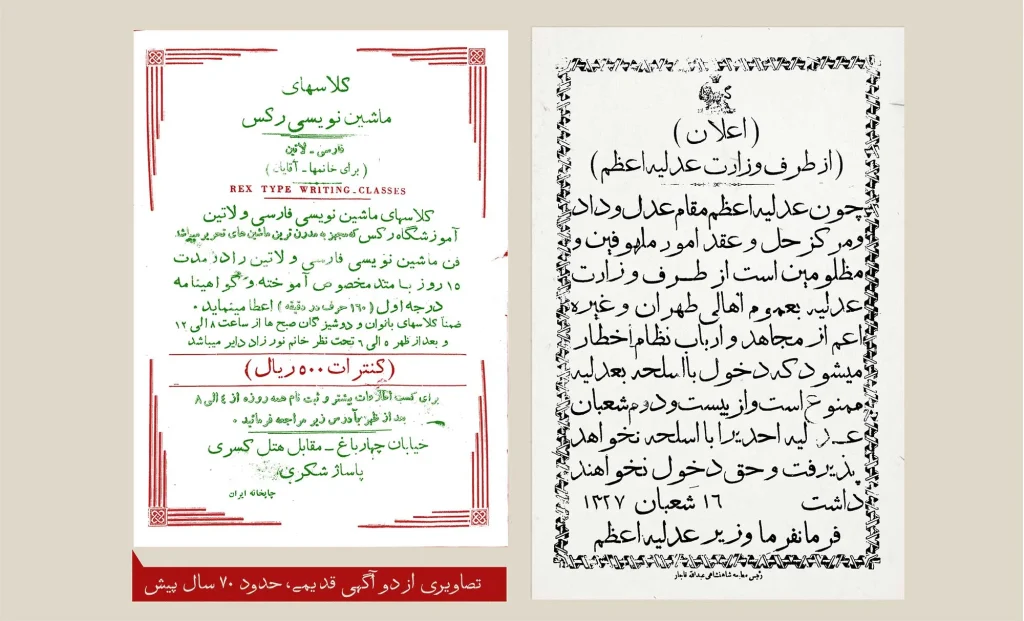 کلاسهای
ماشین نویسی رکس
فارسی - لاتین
( برای خانمها - آقایان )
REX TYPE WRITING-CLASSES
کلاسهای ماشین نویسی فارسی و لاتین
آموزشگاه رکس که مجهز به مدرن ترین ماشین های تحریر میباشد
فن ماشین نویسی فارسی و لاتین را در مدت
۱۵ روز با متد مخصوص آموخته و گواهینامه
درجه اول ( ۱۶۰ حرف در دقیقه ) اعطا مینماید .
ضمناً کلاسهای بانوان و دوشیزگان صبح ها از ساعت ۸ الی ۱۲
و بعد از ظهر ۵ الی ۶ تحت نظر خانم نورزاد دایر میباشد
(کنترات ۵۰۰ ریال)
برای کسب اطلاعات بیشتر و ثبت نام همه روزه از ٤ الی ۸
بعد از ظهر بآدرس زیر مراجعه فرمائید .
خیابان چهارباغ - مقابل هتل کسری
پاساژ شکری
چاپخانه ایران
تصاویری از دو آگهی قدیمی، حدود ۷۰ سال پیش
(اعلان)
(از طرف وزارت عدلیه اعظم)
چون عدلیه اعظم مقام عدل و داد
و مرکز حل و عقد امور ملهوفین و
مظلومین است از طرف وزارت
عدلیه بعموم اهالی طهران و غیره
اعم از مجاهد و ارباب نظام اخطار
میشود که دخول با اسلحه بعدلیه
ممنوع است و از بیست و دوم شعبان
عدلیه احدیرا با اسلحه نخواهد
پذیرفت و حق دخول نخواهند
داشت ۱۶ شعبان ۱۳۲۷
فرمانفرما وزیر عدلیه اعظم
عبدالله قاجار